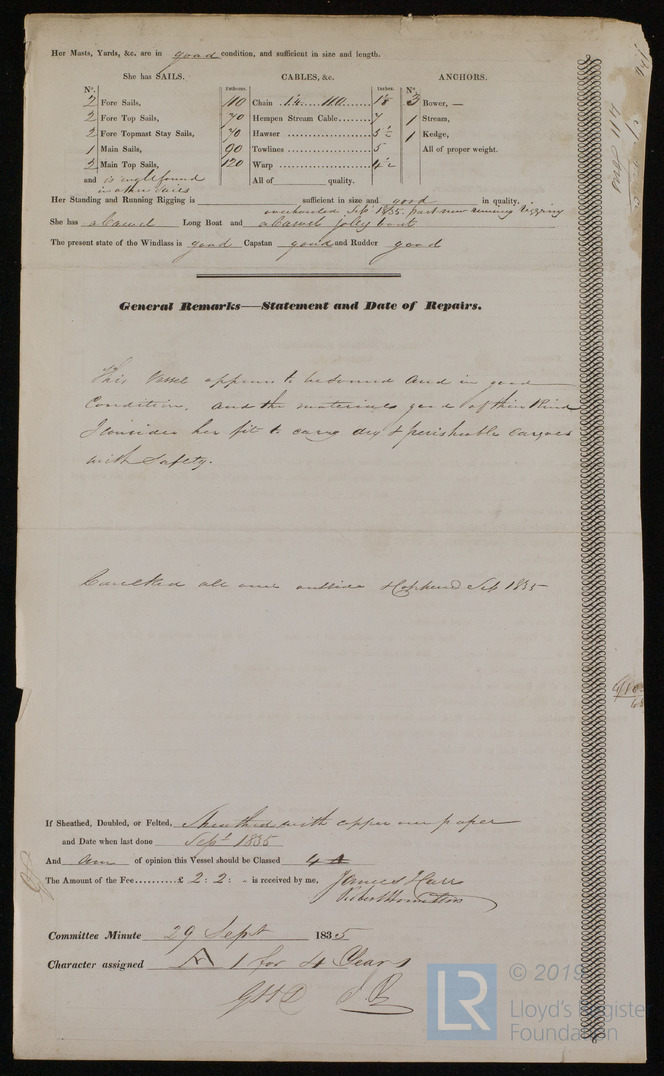 Her Masts, Yards, &c. are in good condition, and sufficient in size and length.
She has SAILS.
CABLES, &c.
ANCHORS.
Nº.
Fathoms.
Inches.
Nº.
2 Fore Sails,
110 Chain
3 Bower, —
2 Fore Top Sails,
70 Hempen Stream Cable 7
1 Stream,
2 Fore Topmast Stay Sails,
70 Hawser 5½
1 Kedge,
1 Main Sails,
90 Towlines 5
All of proper weight.
2 Main Top Sails,
120 Warp
and is well found
in other sails
All of quality.
Her Standing and Running Rigging is sufficient in size and good in quality.
overhauled Sept 1835. part new running rigging
She has a Carvel Long Boat and a Carvel Jolly boat
The present state of the Windlass is good Capstan good and Rudder good
General Remarks—Statement and Date of Repairs.
This Vessel appears to be sound and in good
Condition, and the materials good of their Kind
I consider her fit to carry dry & perishable Cargoes
with Safety.
Caulked all over outside & Coppered Sep 1835
If Sheathed, Doubled, or Felted, Sheathed with copper over paper
and Date when last done Sept 1835
And am of opinion this Vessel should be Classed 4 A
The Amount of the Fee..........£ 2 : 2 : - is received by me,
James
Robert
Committee Minute 29 Sept 1835
Character assigned A 1 for 4 Years
© 2019
LR
Lloyd's Register
Foundation